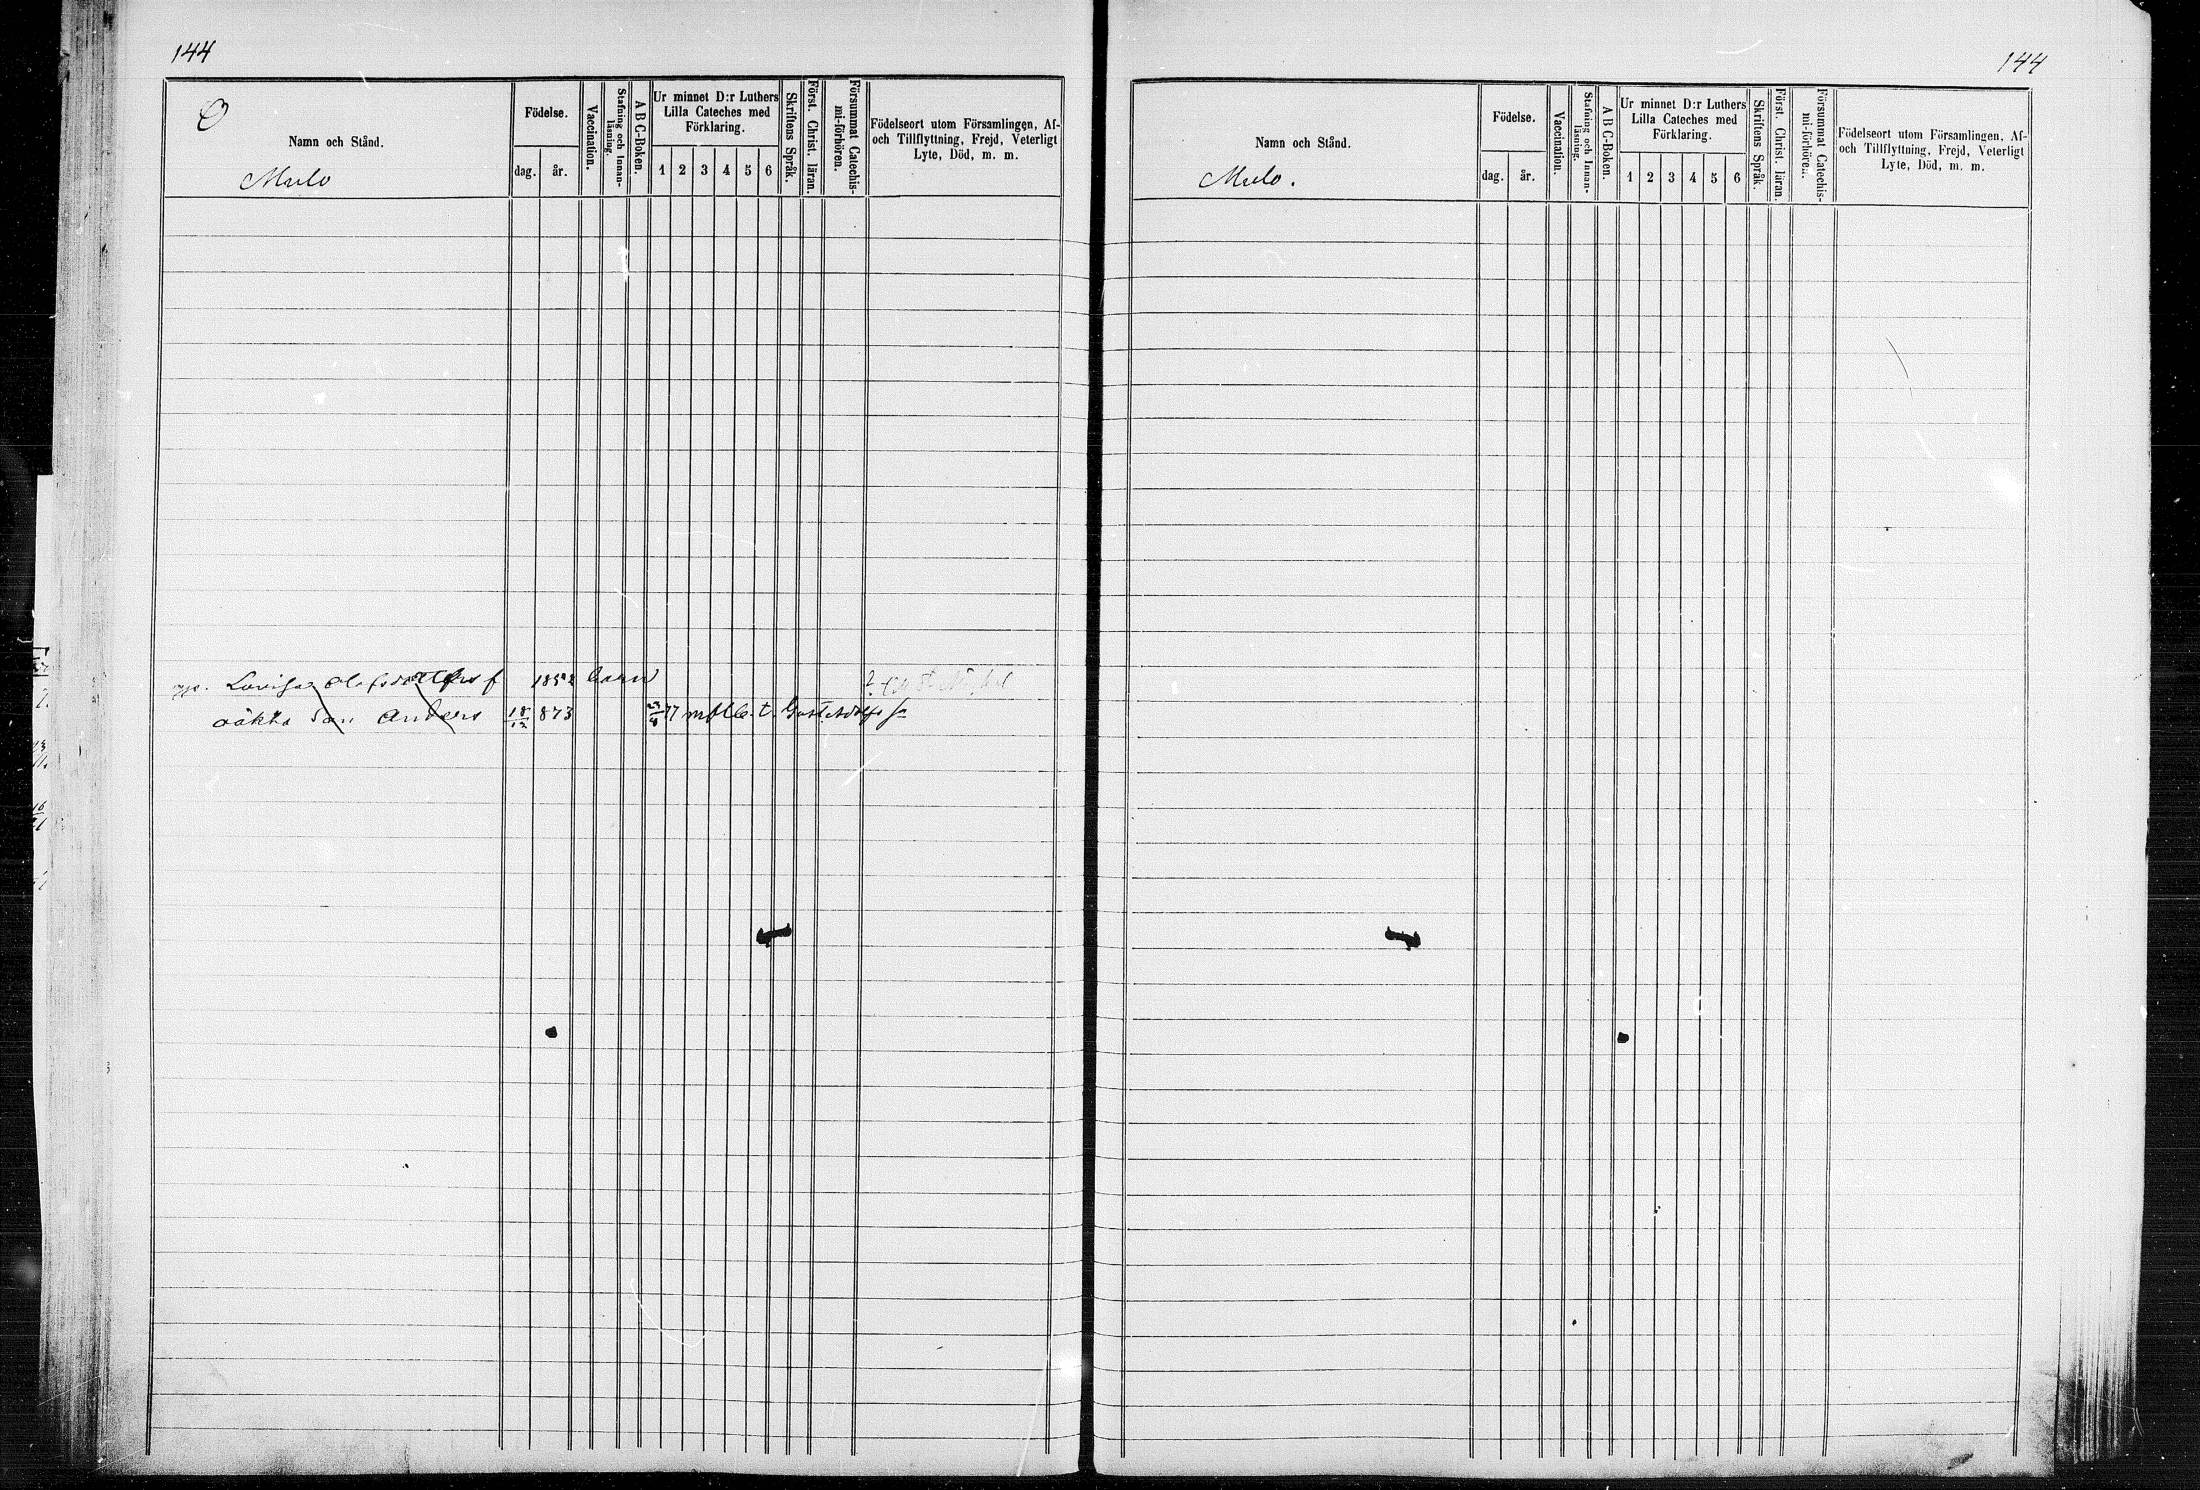 144
O
Namn och Stånd.
Mulo
Födelse.
dag. år.
Vaccination.
Stafning och Innan-läsning.
A B C-Boken.
Ur minnet D:r Luthers
Lilla Cateches med
Förklaring.
1 2 3 4 5 6
Skriftens Språk.
Först. Christ. läran.
Försummat Catechis-mi-förhören.
Födelseort utom Församlingen, Af-
och Tillflyttning, Frejd, Veterligt
Lyte, Död, m. m.
Lovisa 1852 barn
oäkta son Anders 18/12 873 77 Gust Adolfs
144
Namn och Stånd.
Mulo.
Födelse.
dag. år.
Vaccination.
Stafning och Innan-läsning.
A B C-Boken.
Ur minnet D:r Luthers
Lilla Cateches med
Förklaring.
1 2 3 4 5 6
Skriftens Språk.
Först. Christ. läran.
Försummat Catechis-mi-förhören.
Födelseort utom Församlingen, Af-
och Tillflyttning, Frejd, Veterligt
Lyte, Död, m. m.